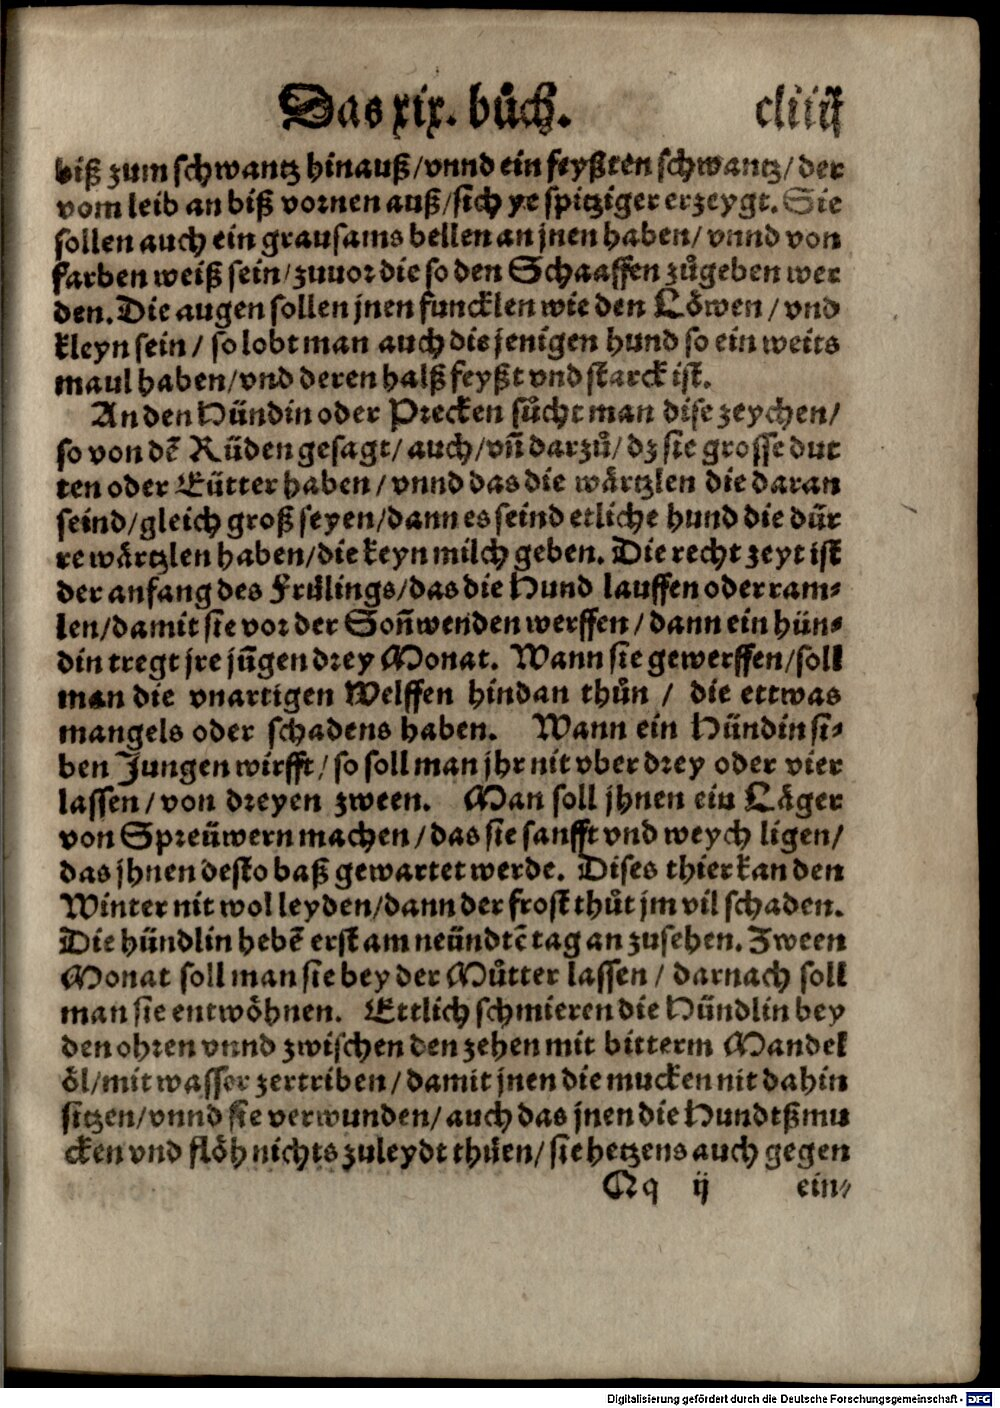 Das xix. bůch. cliiij
biß zum schwantz hinauß/vnnd ein feyßten schwantz/der
vom leib an biß vornen auß/sich ye spitziger erzeygt. Sie
sollen auch ein grausams bellen an jnen haben/ vnnd von
farben weiß sein/zuuor die so den Schaaffen zůgeben wer
den. Die augen sollen jnen funcklen wie den Löwen/ vnd
kleyn sein/ so lobt man auch die jenigen hund so ein weits
maul haben/vnd deren halß feyßt vnd starck ist.
An den Hündin oder Precken sůcht man dise zeychen/
so von dẽ Rüden gesagt/ auch/vñ darzů/ dz sie grosse dut
ten oder Eütter haben/ vnnd das die wärtzlen die daran
seind/gleich groß seyen/dann es seind etliche hund die dür
re wärtzlen haben/die keyn milch geben. Die recht zeyt ist
der anfang des Frülings/das die Hund lauffen oder ram⸗
len/damit sie vor der Soñwenden werffen/ dann ein hün⸗
din tregt jre jũgen drey Monat. Wann sie gewerffen/soll
man die vnartigen Welffen hindan thůn/ die ettwas
mangels oder schadens haben. Wann ein Hündin si⸗
ben Jungen wirfft/ so soll man jhr nit vber drey oder vier
lassen/ von dreyen zween. Man soll jhnen ein Läger
von Spreüwern machen/das sie sanfft vnd weych ligen/
das jhnen desto baß gewartet werde. Dises thier kan den
Winter nit wol leyden/dann der frost thůt jm vil schaden.
Die hündlin hebẽ erst am neündtẽ tag an zusehen. Zween
Monat soll man sie bey der Můtter lassen/ darnach soll
man sie entwöhnen. Ettlich schmieren die Hündlin bey
den ohren vnnd zwischen den zehen mit bitterm Mandel
öl/mit wasser zertriben/damit jnen die mucken nit dahin
sitzen/vnnd sie verwunden/ auch das jnen die Hundtßmu
cken vnd flöh nichts zuleydt thüen/ sie hetzens auch gegen
Qq ij ein⸗
Digitalisierung gefördert durch die Deutsche Forschungsgemeinschaft - DFG